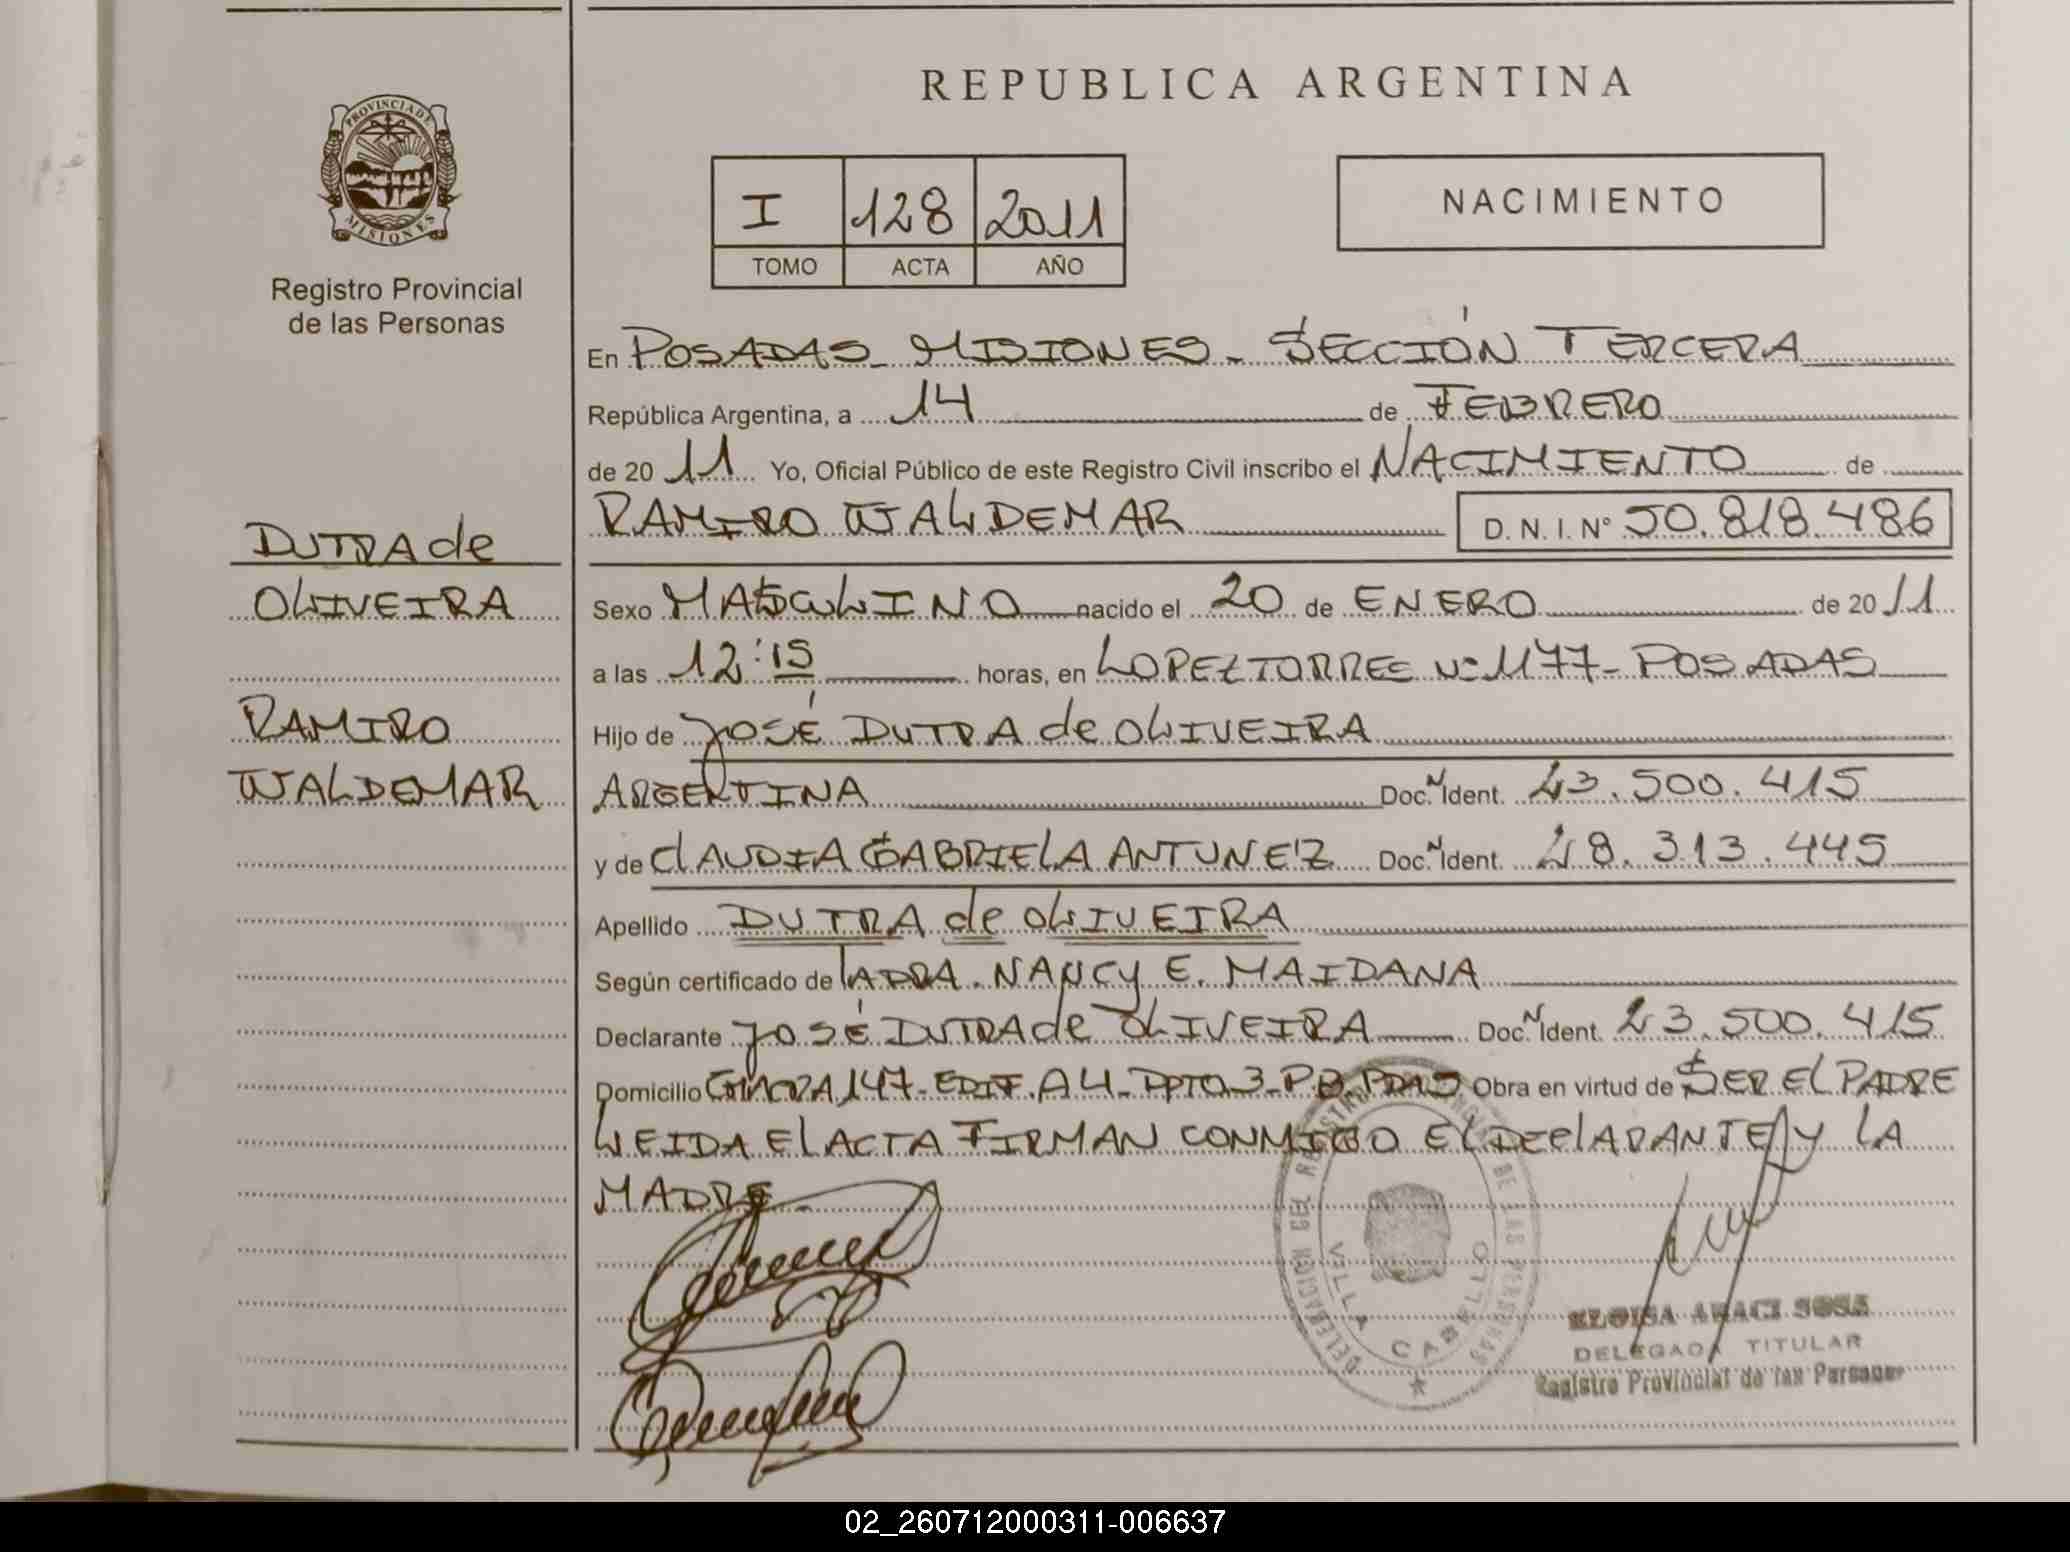 PROVINCIA DE
MISIONES
Registro Provincial
de las Personas
DUTRA de
OLIVEIRA
RAMIRO
WALDEMAR
REPUBLICA ARGENTINA
I 128 2011
TOMO ACTA AÑO
NACIMIENTO
En POSADAS - MISIONES - SECCIÓN TERCERA
República Argentina, a 14 de FEBRERO
de 20 11 Yo, Oficial Público de este Registro Civil inscribo el NACIMIENTO de
RAMIRO WALDEMAR D. N. I. N° 50.818.486
Sexo MASCULINO nacido el 20 de ENERO de 20 11
a las 12:15 horas, en LOPEZ TORRES Nº 1177 - POSADAS
Hijo de JOSÉ DUTRA de OLIVEIRA
ARGENTINA Doc. N Ident. 23.500.415
y de CLAUDIA GABRIELA ANTUNEZ Doc. N Ident. 28.313.445
Apellido DUTRA de OLIVEIRA
Según certificado de LA DRA. NANCY E. MAIDANA
Declarante JOSÉ DUTRA de OLIVEIRA Doc. N Ident. 23.500.415
Domicilio CHACRA 147 - EDIF. A 4 - DPTO 3 - P.B. PDAS Obra en virtud de SER EL PADRE
LEIDA EL ACTA FIRMAN CONMIGO EL DECLARANTE Y LA
MADRE.
DELEGACION DEL REGISTRO PROVINCIAL DE LAS PERSONAS
VILLA CABELLO
ELOISA ARACI SOSA
DELEGADA TITULAR
Registro Provincial de las Personas
02_260712000311-006637